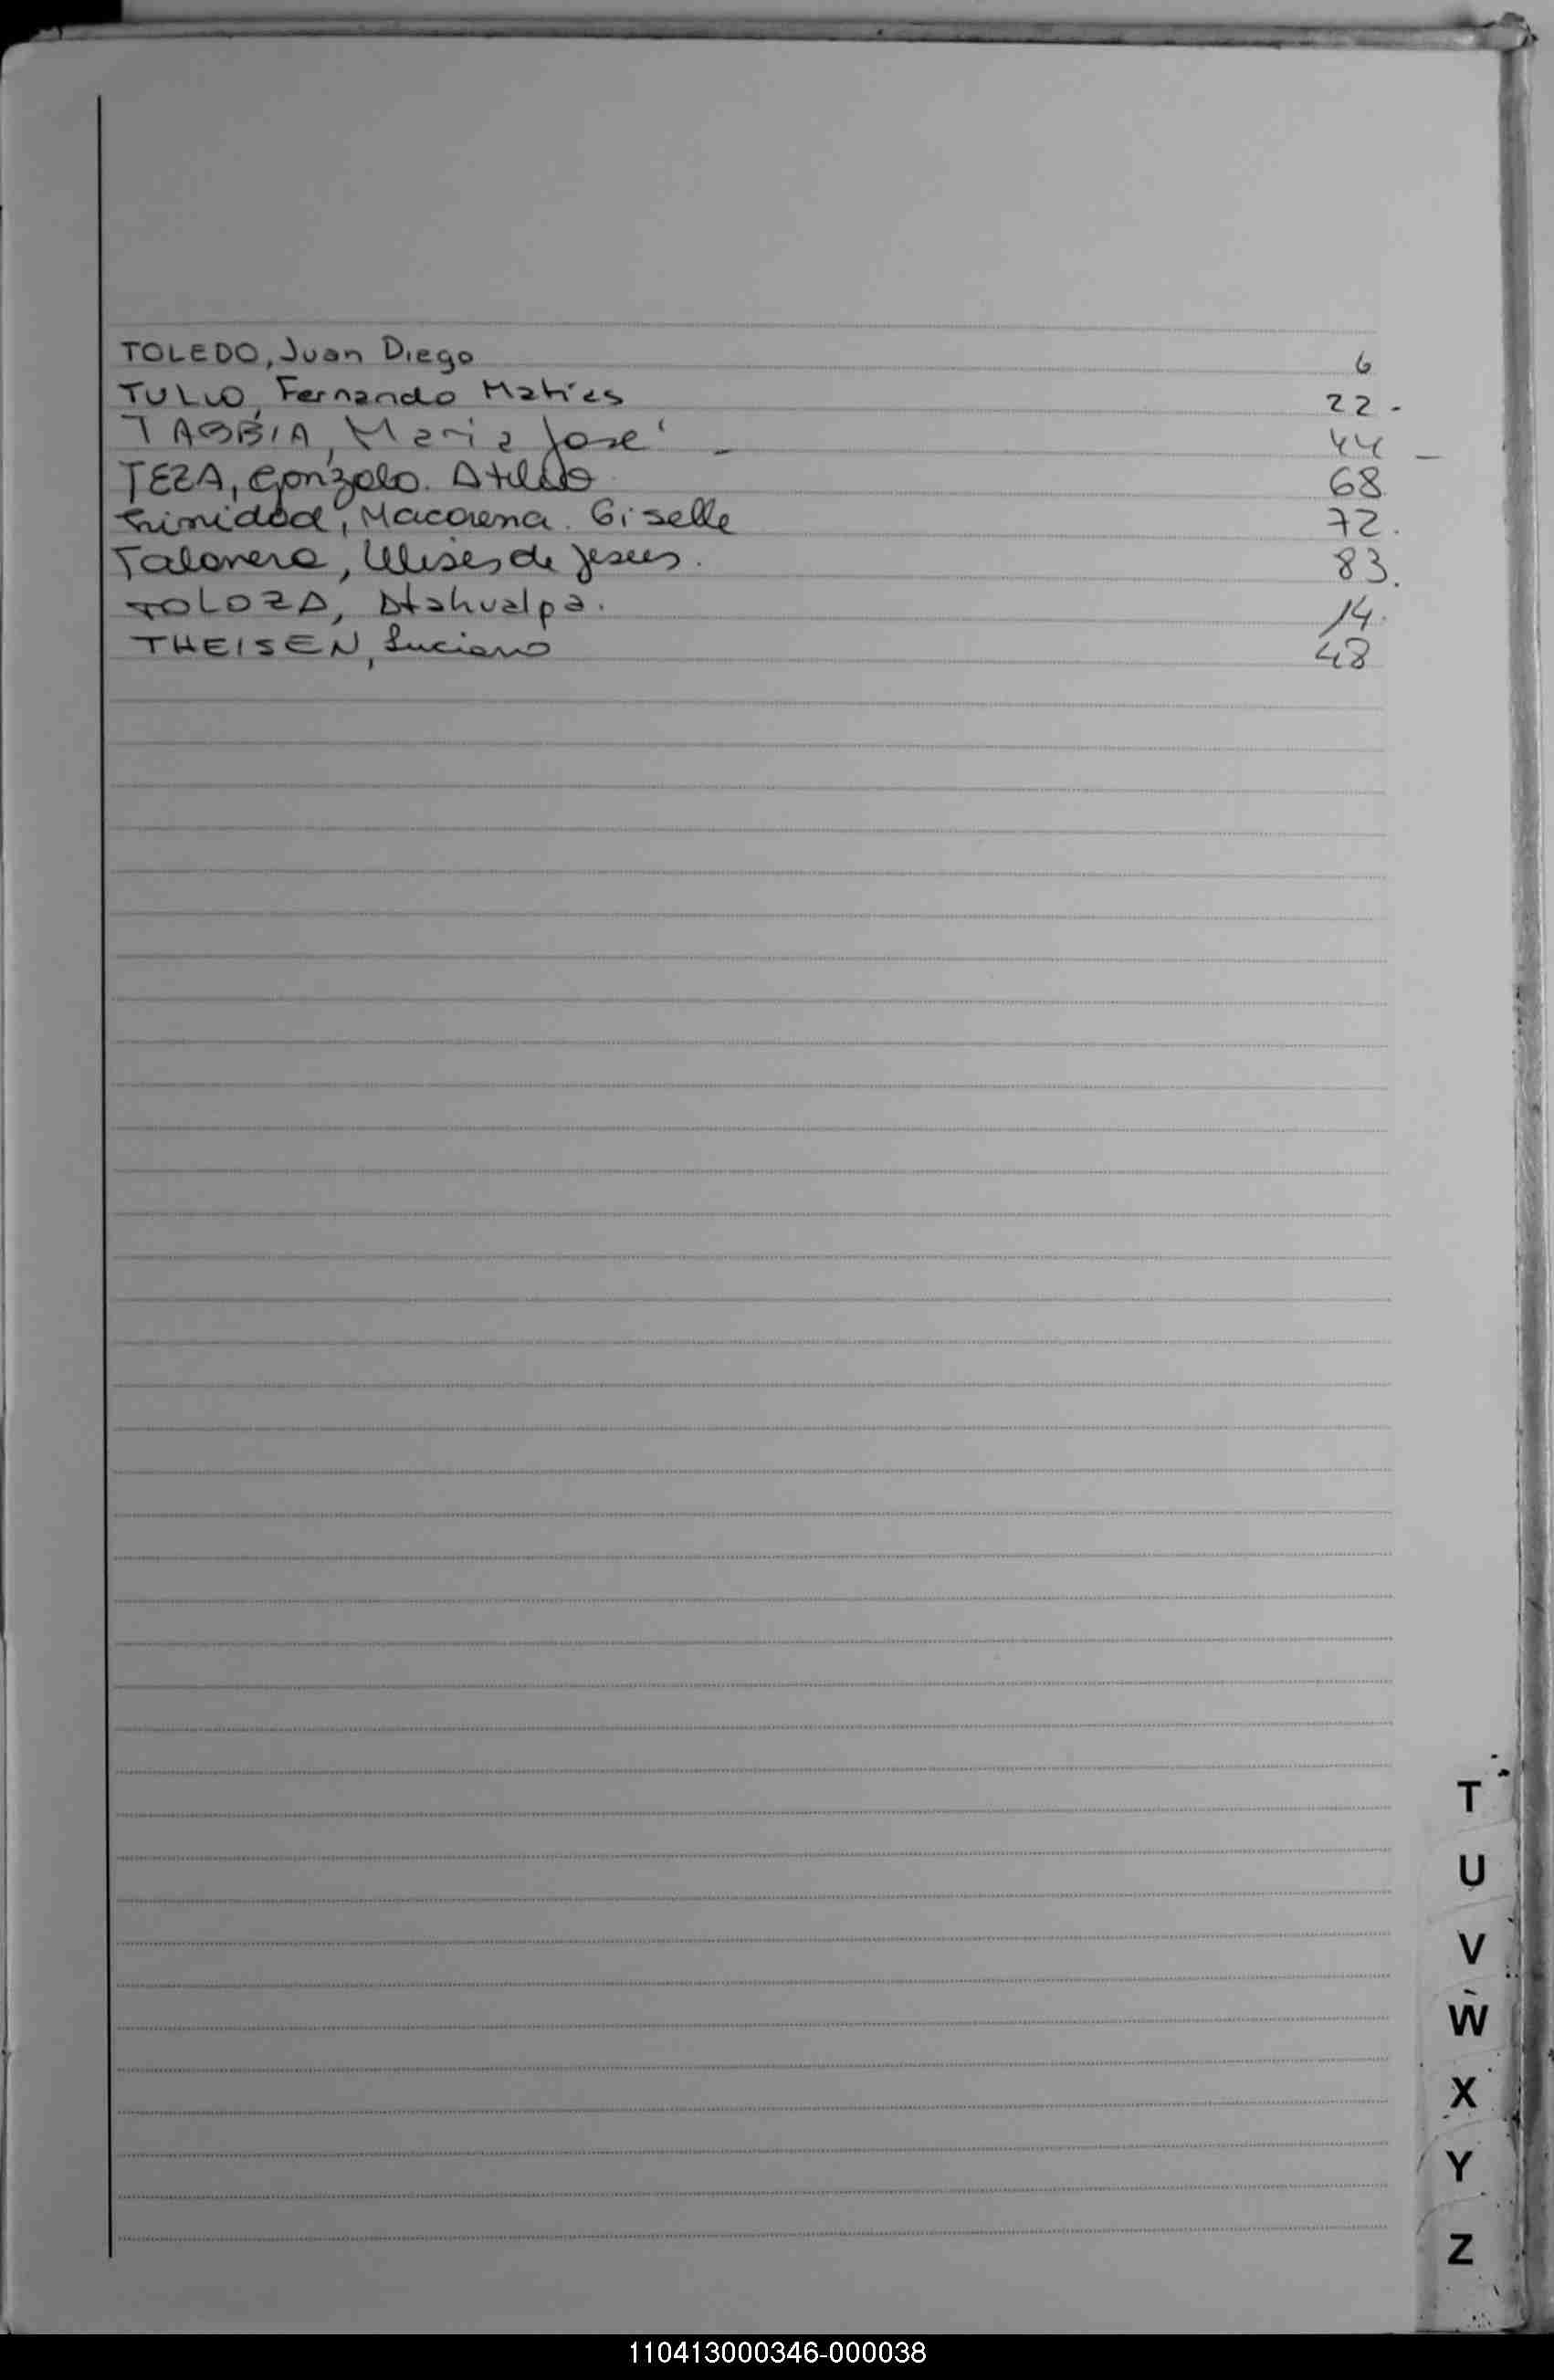 TOLEDO, Juan Diego 6
TULLIO, Fernando Matías 22-
TABBIA, María José - 44 -
TEZA, Gonzalo. Atilio 68
Trinidad, Macarena. Giselle 72.
Talavera, Ulises de Jesus. 83.
TOLOZA, Atahualpa. 14.
THEISEN, Luciano 48
T
U
V
W
X
Y
Z
110413000346-000038